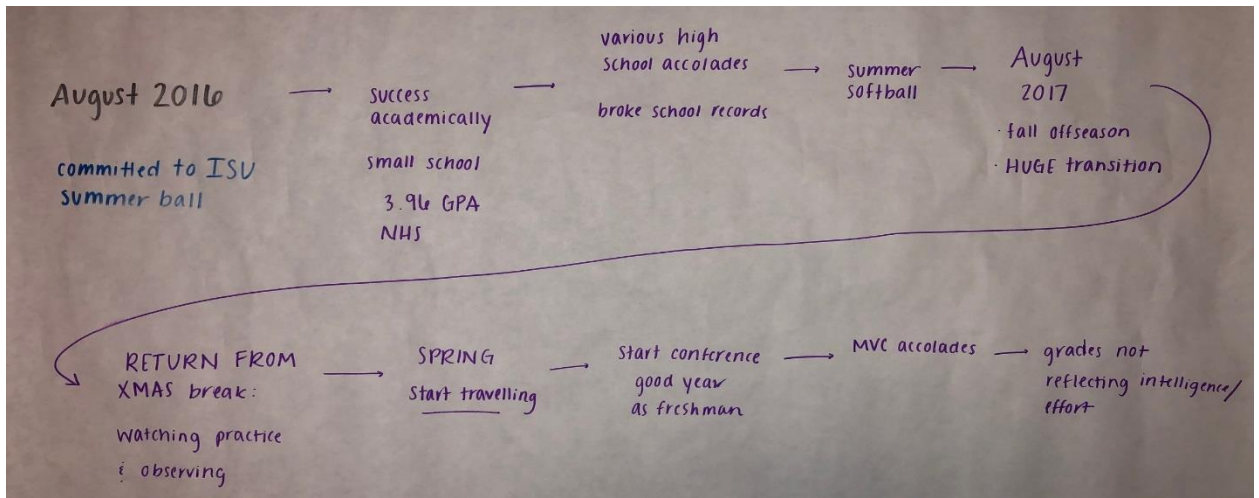 August 2016
committed to ISU
summer ball
success
academically
small school
3.96 GPA
NHS
various high
school accolades
broke school records
summer
softball
August
2017
· fall offseason
· HUGE transition
RETURN FROM
XMAS break:
watching practice
& observing
SPRING
start travelling
start conference
good year
as freshman
MVC accolades
grades not
reflecting intelligence/
effort